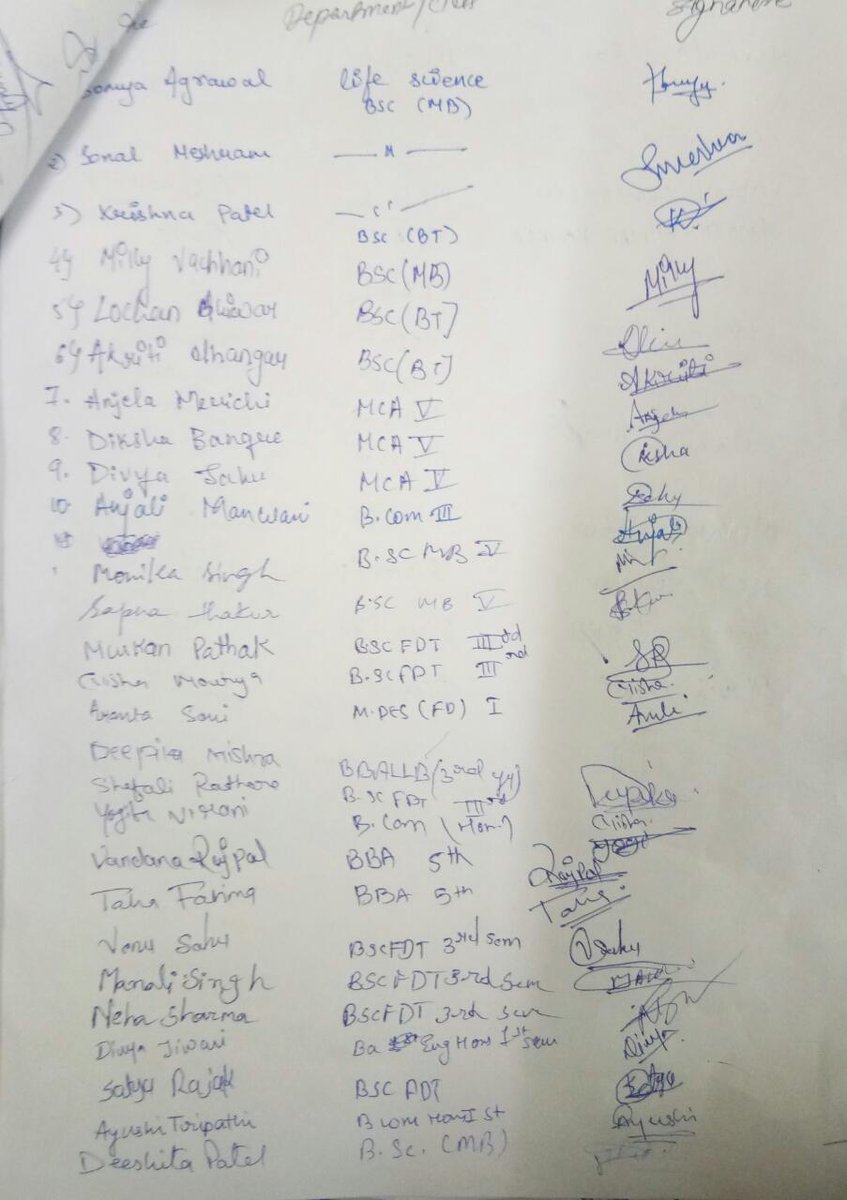 Department/Class Signature
Somya Agrawal Life science
BSC (MB)
2) Sonal Meshram — " —
3) Krishna Patel — " —
BSC (BT)
4) Milly Vachhani BSC (MB) Milly
5) Lochan BSC (BT)
6) Akriti dhangay BSC (BT) Akriti
7. Anjela Merichi MCA V Anjela
8. Diksha Banque MCA V Diksha
9. Divya Sahu MCA V Sahu
10 Anjali Manwani B.Com III Anjali
Monika Singh B.SC MB V
Sapna Thakur B.SC MB V
Muskan Pathak BSC FDT III rd
Mourya B.SC FDT III rd
Soni M.DES (FD) I
Deepika Mishra BBALLB (3rd yr) Deepika
Shefali Rathore B.SC FDT III rd
B.Com (Hon.)
Vandana Rajpal BBA 5th Rajpal
Taha Fatima BBA 5th Taha
Venu Sahu BSCFDT 3rd sem VSahu
Manali Singh BSCFDT 3rd Sem
Neha Sharma BSCFDT 3rd Sem
Divya Tiwari Ba Eng Hons 1st Sem Divya
Satya Rajak BSC PDT
Ayushi Tripathi B com Hon I st Ayushi
Deeshita Patel B.Sc. (MB)